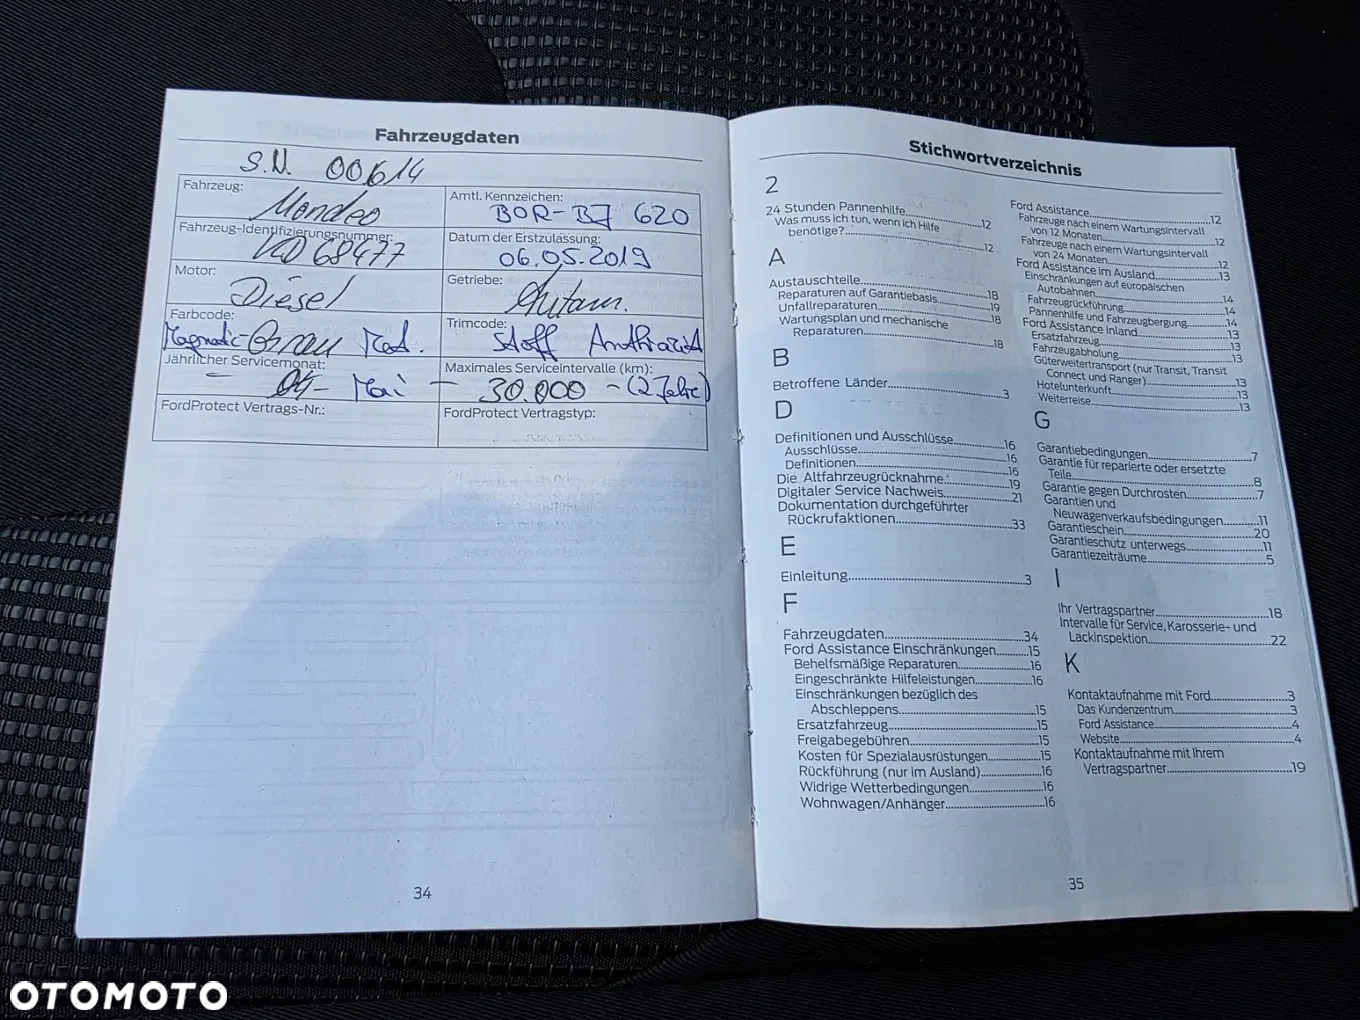 Fahrzeugdaten
S.N. 00614
Fahrzeug: Mondeo
Amtl. Kennzeichen: BOR-B7 620
Fahrzeug-Identifizierungsnummer: KD 68477
Datum der Erstzulassung: 06.05.2019
Motor: Diesel
Getriebe: Autom.
Farbcode: Magnetic-Grau Met.
Trimcode: Stoff Anthrazit
Jährlicher Servicemonat: - 04 - Mai -
Maximales Serviceintervalle (km): 30.000 - (2 Jahre)
FordProtect Vertrags-Nr.:
FordProtect Vertragstyp:
34
Stichwortverzeichnis
2
24 Stunden Pannenhilfe....12
Was muss ich tun, wenn ich Hilfe
benötige?....12
A
Austauschteile....18
Reparaturen auf Garantiebasis....19
Unfallreparaturen....18
Wartungsplan und mechanische
Reparaturen....18
B
Betroffene Länder....3
D
Definitionen und Ausschlüsse....16
Ausschlüsse....16
Definitionen....16
Die Altfahrzeugrücknahme....19
Digitaler Service Nachweis....21
Dokumentation durchgeführter
Rückrufaktionen....33
E
Einleitung....3
F
Fahrzeugdaten....34
Ford Assistance Einschränkungen....15
Behelfsmäßige Reparaturen....16
Eingeschränkte Hilfeleistungen....16
Einschränkungen bezüglich des
Abschleppens....15
Ersatzfahrzeug....15
Freigabegebühren....15
Kosten für Spezialausrüstungen....15
Rückführung (nur im Ausland)....16
Widrige Wetterbedingungen....16
Wohnwagen/Anhänger....16
Ford Assistance....12
Fahrzeuge nach einem Wartungsintervall
von 12 Monaten....12
Fahrzeuge nach einem Wartungsintervall
von 24 Monaten....12
Ford Assistance im Ausland....13
Einschränkungen auf europäischen
Autobahnen....14
Fahrzeugrückführung....14
Pannenhilfe und Fahrzeugbergung....14
Ford Assistance Inland....13
Ersatzfahrzeug....13
Fahrzeugabholung....13
Güterweitertransport (nur Transit, Transit
Connect und Ranger)....13
Hotelunterkunft....13
Weiterreise....13
G
Garantiebedingungen....7
Garantie für reparierte oder ersetzte
Teile....8
Garantie gegen Durchrosten....7
Garantien und
Neuwagenverkaufsbedingungen....11
Garantieschein....20
Garantieschutz unterwegs....11
Garantiezeiträume....5
I
Ihr Vertragspartner....18
Intervalle für Service, Karosserie- und
Lackinspektion....22
K
Kontaktaufnahme mit Ford....3
Das Kundenzentrum....3
Ford Assistance....4
Website....4
Kontaktaufnahme mit Ihrem
Vertragspartner....19
35
OTOMOTO